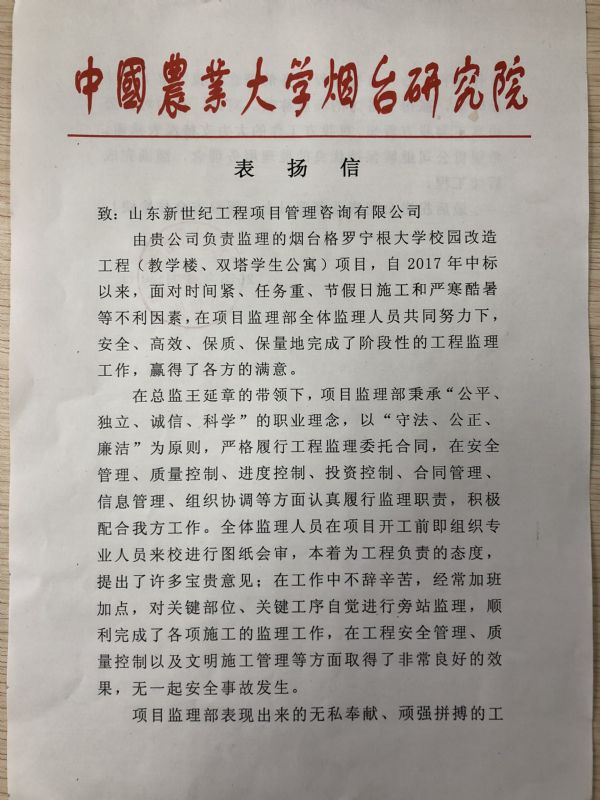 中國農業大学烟台研究院
表扬信
致：山东新世纪工程项目管理咨询有限公司
由贵公司负责监理的烟台格罗宁根大学校园改造
工程（教学楼、双塔学生公寓）项目，自 2017 年中标
以来，面对时间紧、任务重、节假日施工和严寒酷暑
等不利因素，在项目监理部全体监理人员共同努力下，
安全、高效、保质、保量地完成了阶段性的工程监理
工作，赢得了各方的满意。
在总监王延章的带领下，项目监理部秉承“公平、
独立、诚信、科学”的职业理念，以“守法、公正、
廉洁”为原则，严格履行工程监理委托合同，在安全
管理、质量控制、进度控制、投资控制、合同管理、
信息管理、组织协调等方面认真履行监理职责，积极
配合我方工作。全体监理人员在项目开工前即组织专
业人员来校进行图纸会审，本着为工程负责的态度，
提出了许多宝贵意见；在工作中不辞辛苦，经常加班
加点，对关键部位、关键工序自觉进行旁站监理，顺
利完成了各项施工的监理工作，在工程安全管理、质
量控制以及文明施工管理等方面取得了非常良好的效
果，无一起安全事故发生。
项目监理部表现出来的无私奉献、顽强拼搏的工